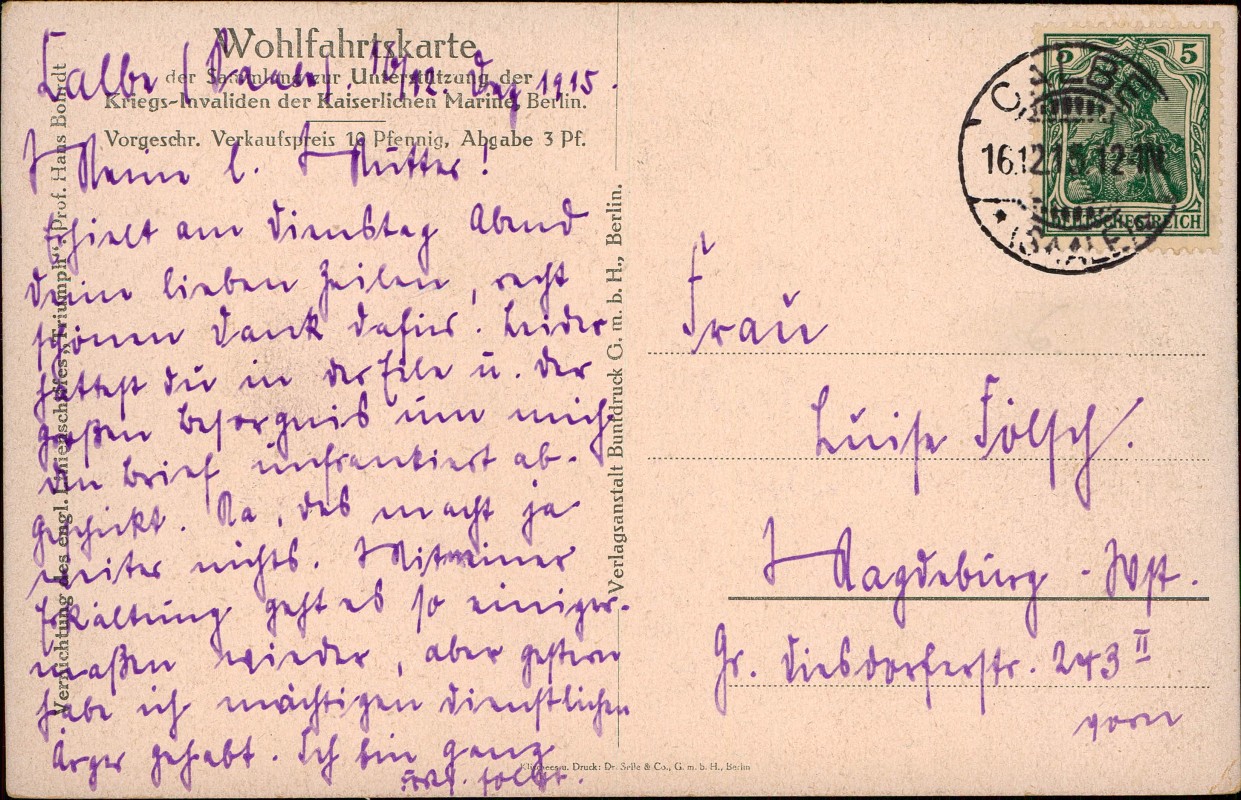 Wohlfahrtskarte
der Sammlung zur Unterstützung der
Kriegs-Invaliden der Kaiserlichen Marine, Berlin.
Vorgeschr. Verkaufspreis 10 Pfennig, Abgabe 3 Pf.
Calbe (Saale). 16/12. 1915.
Meine l. Mutter!
Erhielt am Dienstag Abend
Deine lieben Zeilen, recht
schönen Dank dafür. Leider
hattest Du in der Eile u. der
großen Besorgnis um mich
den Brief unfrankiert ab-
geschickt. Na, das macht ja
weiter nichts. Mit meiner
Erkältung geht es so einiger-
maßen wieder, aber gestern
habe ich mächtigen dienstlichen
Ärger gehabt. Ich bin ganz
Forts. folgt.
Vernichtung des engl. Linienschiffes „Triumph“. Prof. Hans Bohrdt
Verlagsanstalt Buntdruck G. m. b. H., Berlin.
Klischees u. Druck: Dr. Selle & Co., G. m. b. H., Berlin
5 5
DEUTSCHES REICH
CALBE
16.12.15. 12-1N
* (SAALE)
Frau
Luise Fölsch.
Magdeburg - Wst.
Gr. Diesdorferstr. 243 II
vorn